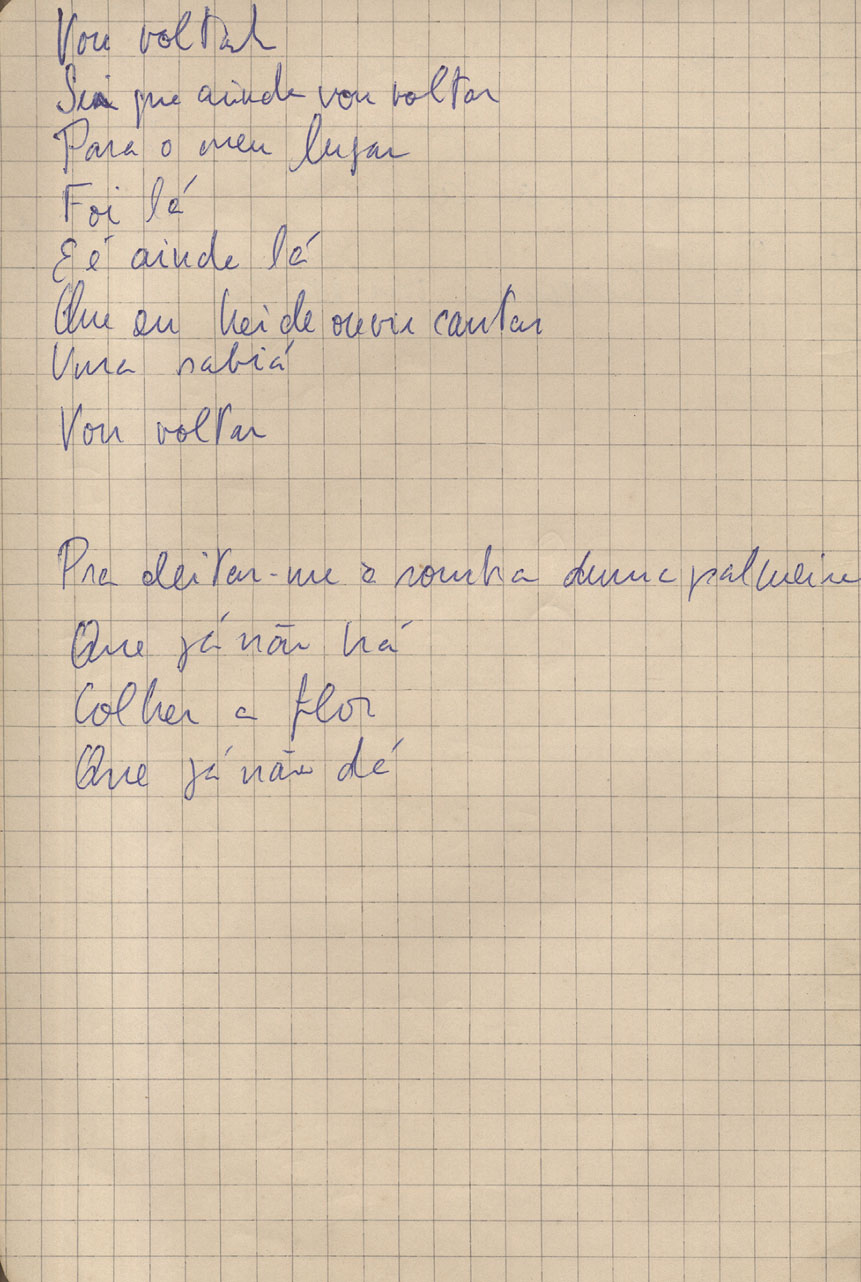 Vou voltar
Sei que ainda vou voltar
Para o meu lugar
Foi lá
E é ainda lá
Que eu hei de ouvir cantar
Uma sabiá
Vou voltar
Pra deitar-me à sombra duma palmeira
Que já não há
Colher a flor
Que já não dá